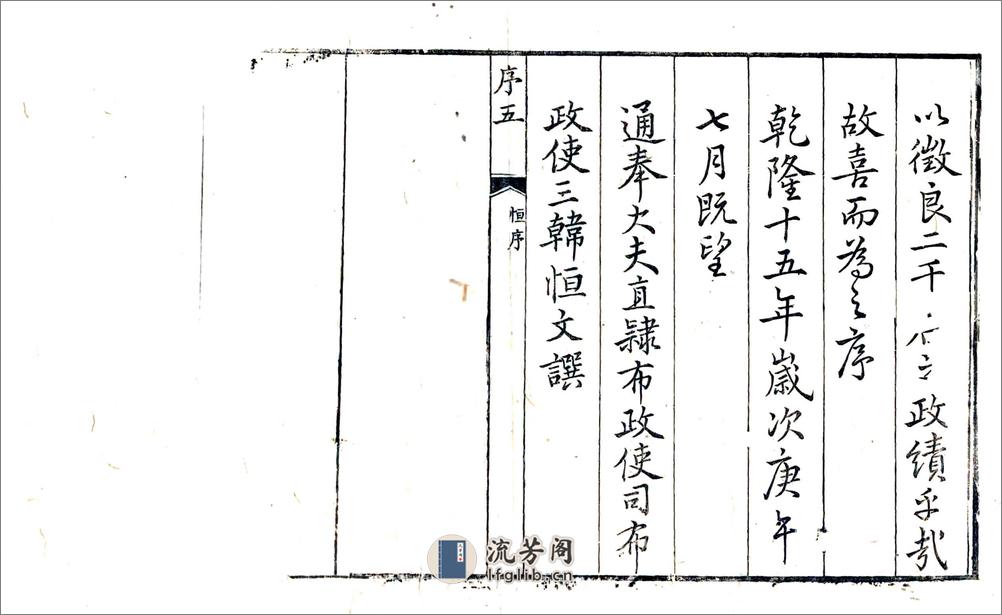 以徵良二千石之政績乎哉
故喜而為之序
乾隆十五年歲次庚午
七月既望
通奉大夫直隸布政使司布
政使三韓恒文譔
序五
恒序
流芳阁
lfglib.cn